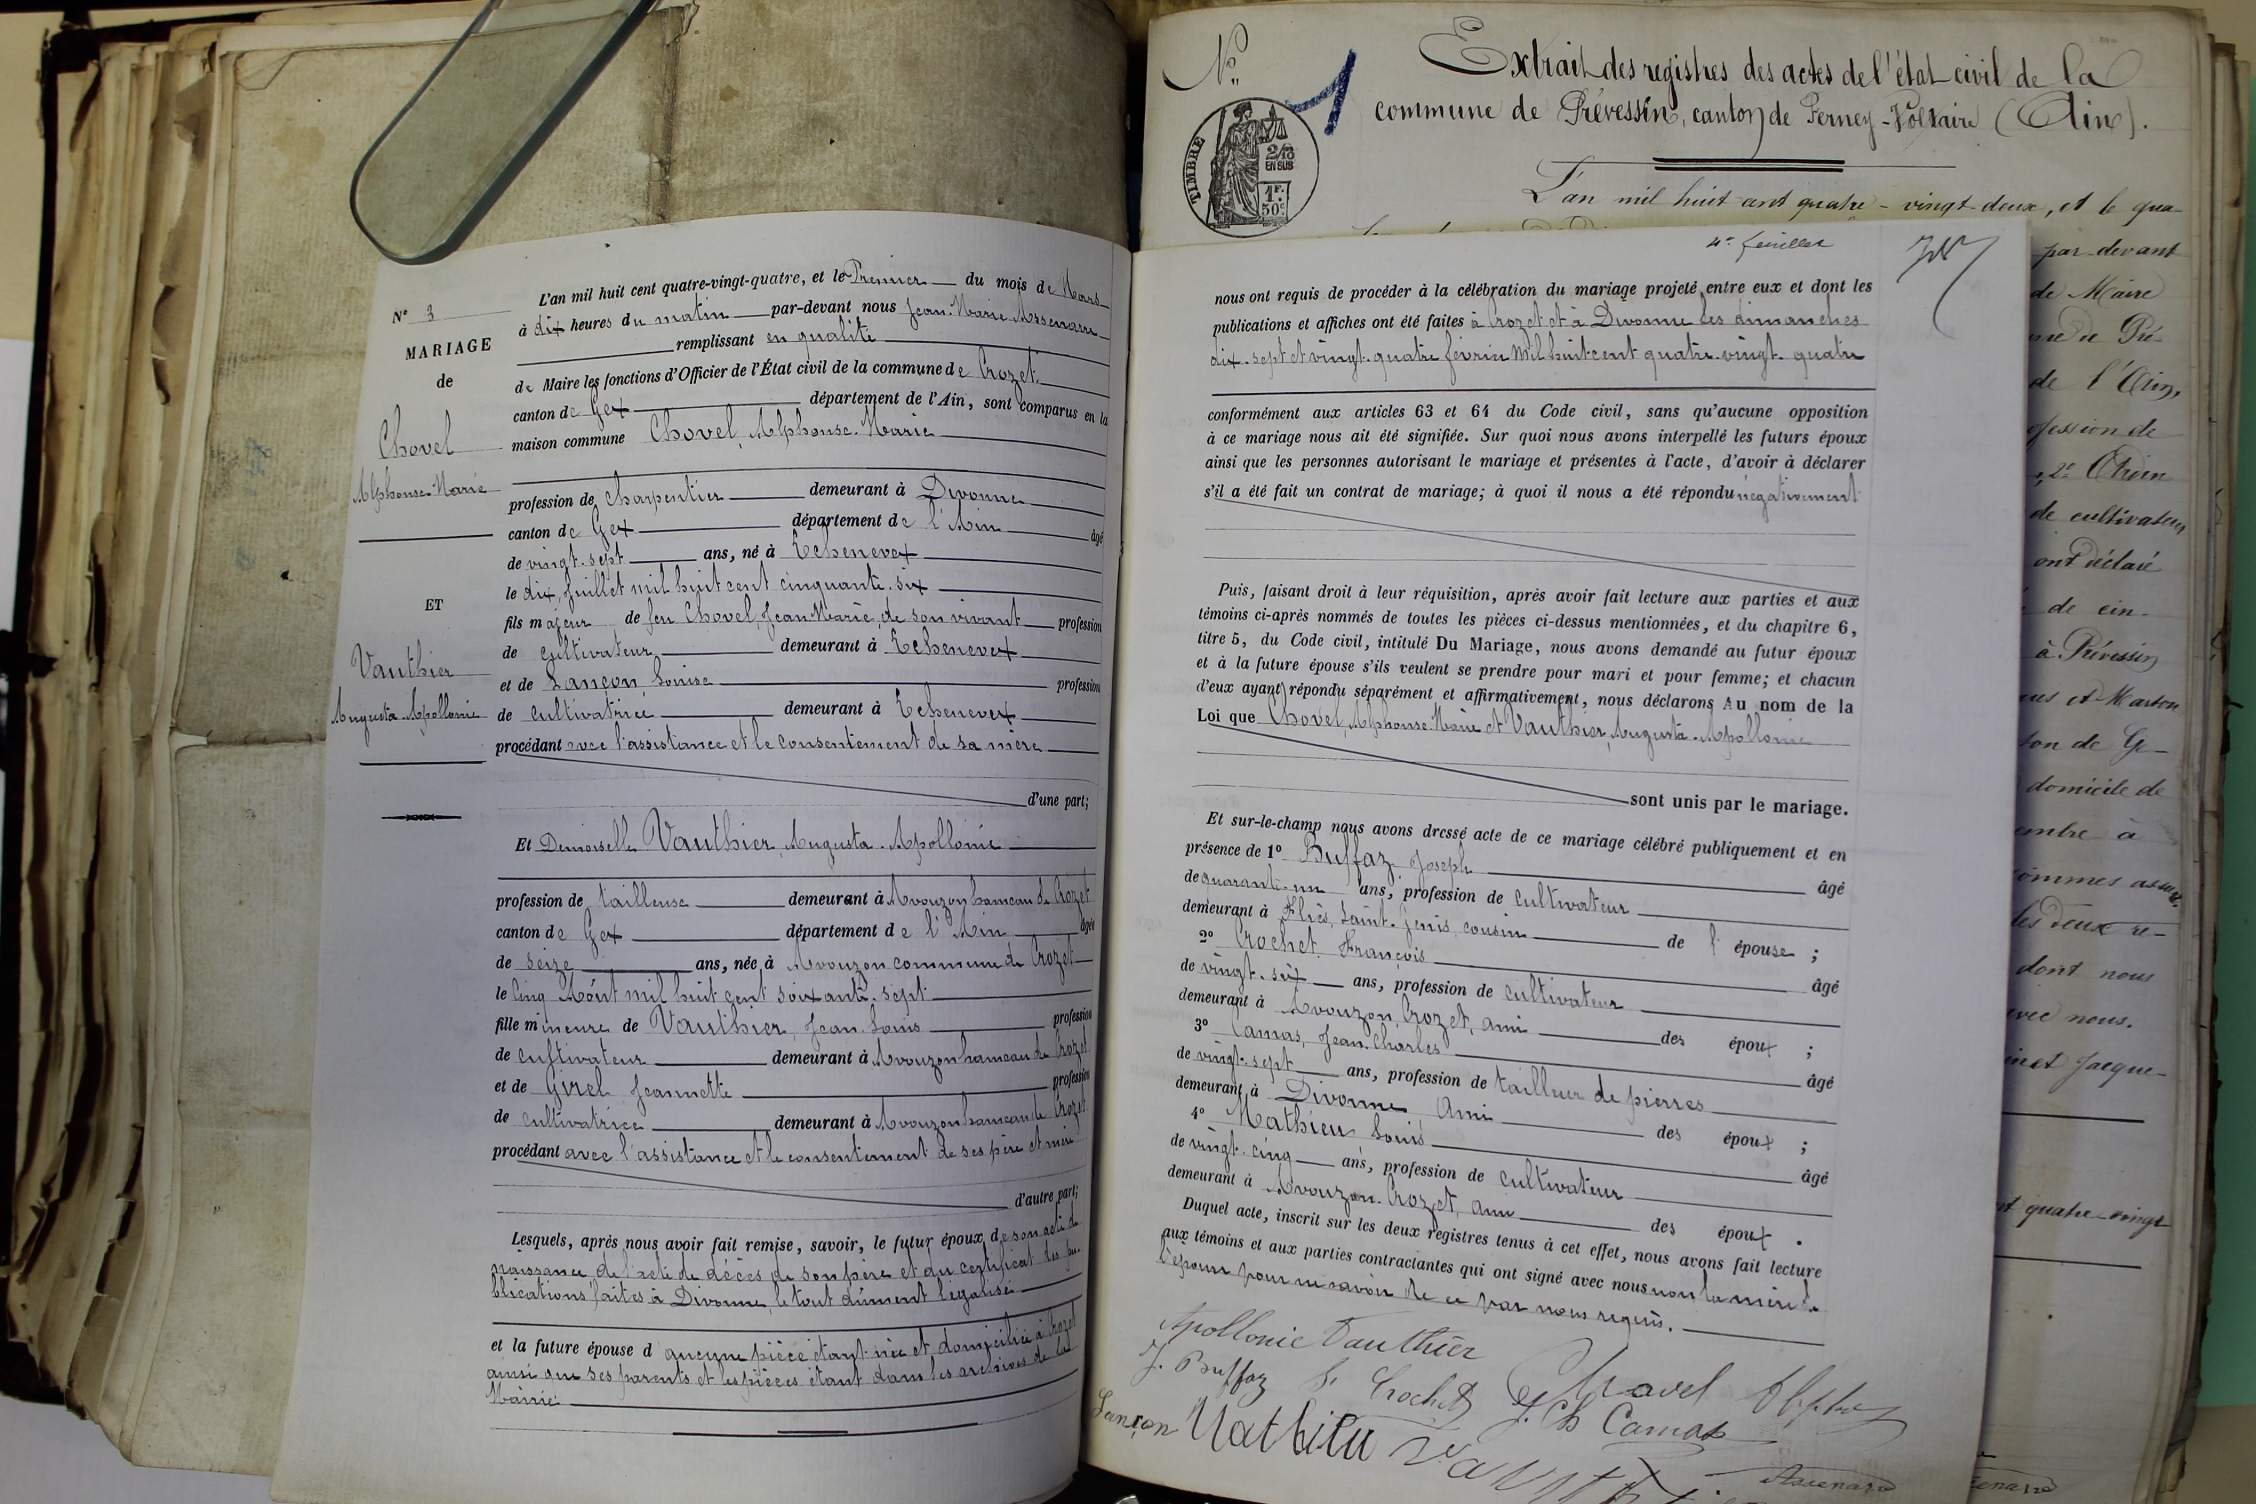 L'an mil huit cent quatre-vingt-quatre, et le Premier du mois de Mars
à dix heures du matin par-devant nous Jean-Marie Assenare
remplissant en qualité
de Maire les fonctions d'Officier de l'État civil de la commune de Crozet
canton de Gex département de l'Ain, sont comparus en la
maison commune Chovel, Alphonse-Marie
N° 3
MARIAGE
de
Chovel
Alphonse-Marie
ET
Vauthier
Augusta-Apollonie
profession de charpentier demeurant à Divonne
canton de Gex département de l'Ain âgé
de vingt-sept ans, né à Echenevex
le dix Juillet mil huit cent cinquante-six
fils majeur de feu Chovel, Jean Marie, de son vivant profession
de cultivateur demeurant à Echenevex
et de Lançon, Louise profession
de cultivatrice demeurant à Echenevex
procédant avec l'assistance et le consentement de sa mère
d'une part;
Et Demoiselle Vauthier, Augusta-Apollonie
profession de tailleuse demeurant à Avouzon hameau de Crozet
canton de Gex département de l'Ain âgée
de seize ans, née à Avouzon commune de Crozet
le cinq Août mil huit cent soixante-sept
fille mineure de Vauthier, Jean-Louis profession
de cultivateur demeurant à Avouzon hameau de Crozet
et de Girel Jeannette profession
de cultivatrice demeurant à Avouzon hameau de Crozet
procédant avec l'assistance et le consentement de ses père et mère
d'autre part;
Lesquels, après nous avoir fait remise, savoir, le futur époux, de son acte de
naissance de l'acte de décès de son père et du certificat des pu-
blications faites à Divonne, le tout dûment légalisé
et la future épouse d aucune pièce étant née et domiciliée à Crozet
ainsi que ses parents et les pièces étant dans les archives de la
Mairie
N°
1
Extrait des registres des actes de l'état civil de la
commune de Prévessin, canton de Ferney-Voltaire (Ain).
TIMBRE
2/10
EN SUS
1F.
50c
L'an mil huit cent quatre-vingt-deux, et le qua-
par-devant
de Maire
de Pré-
de l'Ain,
ofession de
de cultivateur
ont déclaré
de cin-
à Prévessin
domicile de
dont nous
avec nous.
Jacque-
quatre-vingt
4e feuillet
nous ont requis de procéder à la célébration du mariage projeté entre eux et dont les
publications et affiches ont été faites à Crozet et à Divonne les dimanches
dix-sept et vingt-quatre février mil huit cent quatre-vingt-quatre
conformément aux articles 63 et 64 du Code civil, sans qu'aucune opposition
à ce mariage nous ait été signifiée. Sur quoi nous avons interpellé les futurs époux
ainsi que les personnes autorisant le mariage et présentes à l'acte, d'avoir à déclarer
s'il a été fait un contrat de mariage; à quoi il nous a été répondu négativement
Puis, faisant droit à leur réquisition, après avoir fait lecture aux parties et aux
témoins ci-après nommés de toutes les pièces ci-dessus mentionnées, et du chapitre 6,
titre 5, du Code civil, intitulé Du Mariage, nous avons demandé au futur époux
et à la future épouse s'ils veulent se prendre pour mari et pour femme; et chacun
d'eux ayant répondu séparément et affirmativement, nous déclarons Au nom de la
Loi que Chovel, Alphonse-Marie et Vauthier, Augusta-Apollonie
sont unis par le mariage.
Et sur-le-champ nous avons dressé acte de ce mariage célébré publiquement et en
présence de 1° Buffaz, Joseph âgé
de quarante-un ans, profession de cultivateur
demeurant à Fliès, Saint-Jenis, cousin de l'épouse ;
2° Crochet, François âgé
de vingt-six ans, profession de cultivateur
demeurant à Avouzon, Crozet, ami des époux ;
3° Camas, Jean-Charles âgé
de vingt-sept ans, profession de tailleur de pierres
demeurant à Divonne Ami des époux ;
4° Mathieu Louis âgé
de vingt-cinq ans, profession de cultivateur
demeurant à Avouzon-Crozet, ami des époux .
Duquel acte, inscrit sur les deux registres tenus à cet effet, nous avons fait lecture
aux témoins et aux parties contractantes qui ont signé avec nous non la mère de
l'épouse pour ne savoir de ce par nous requis.
Apollonie Vauthier
J. Buffaz
Crochet
Chovel Alph
J. Ch Camas
Lançon
Mathieu
Assenare